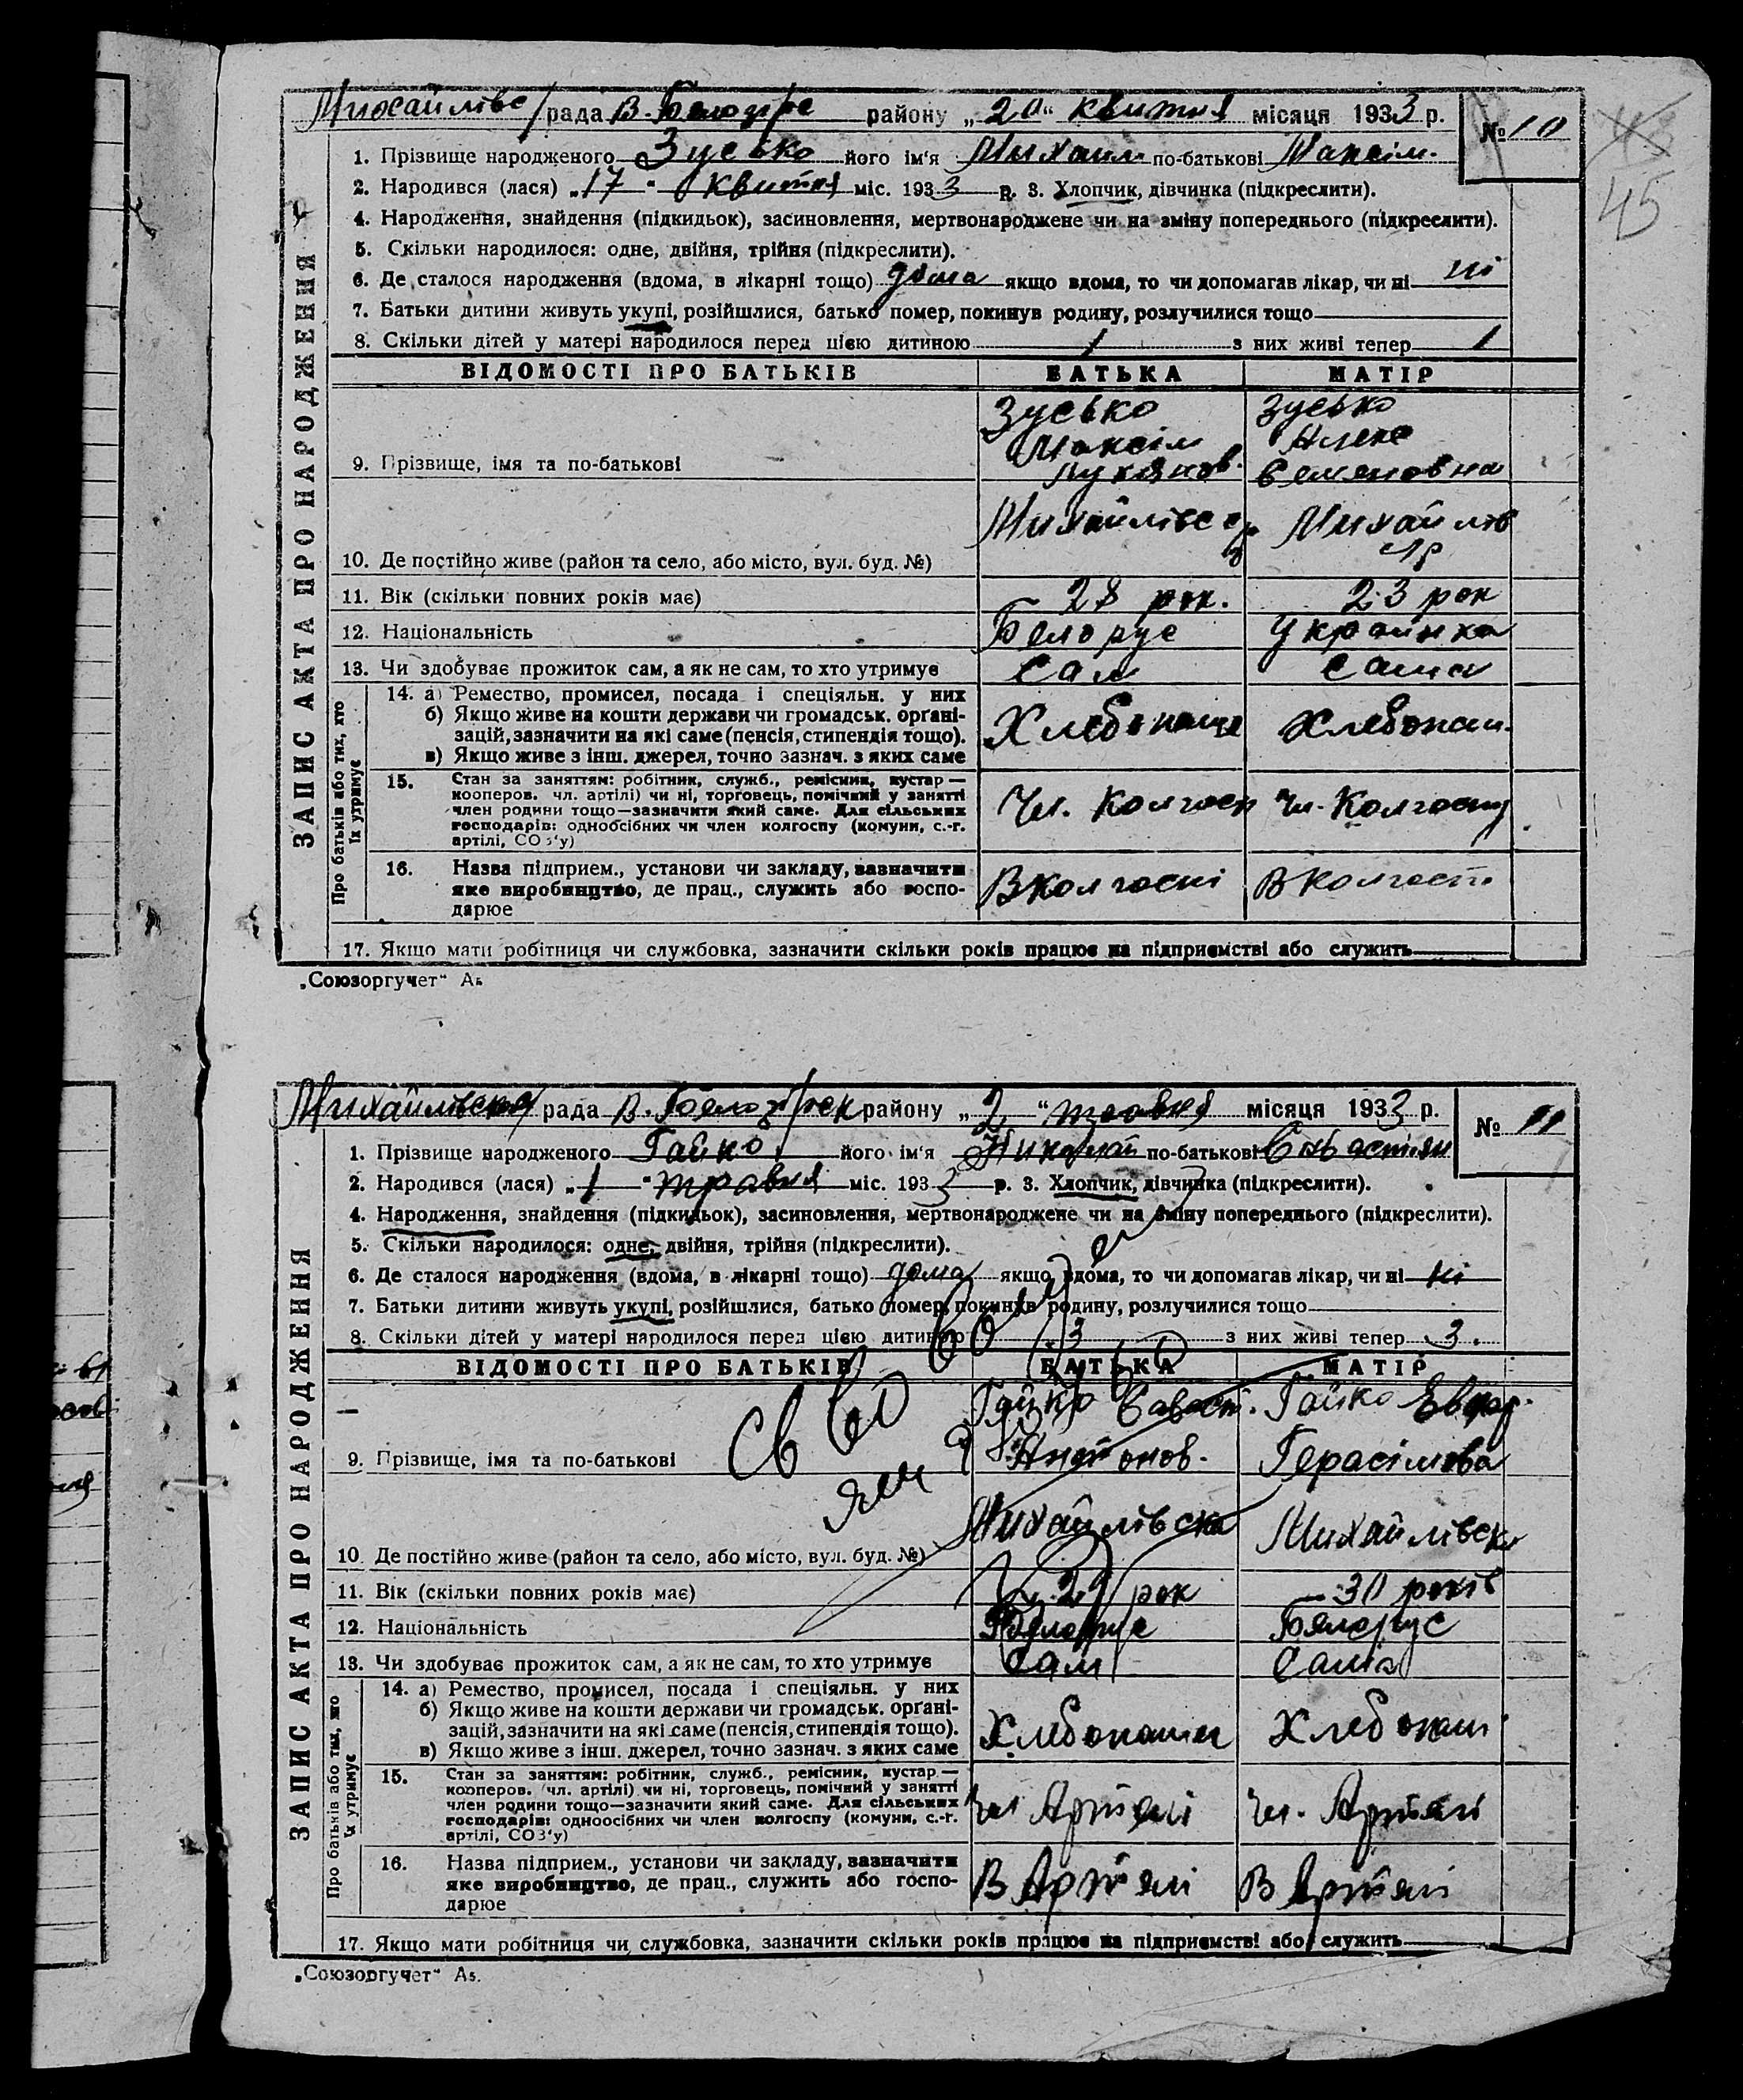 43
45
Михайлівс/рада В. Белозірс району „20“ квитня місяця 1933 р.
№ 10
1. Прізвище народженого Зусько його ім'я Михаил по-батькові Максім.
2. Народився (лася) „17“ квитня міс. 1933 р. 3. Хлопчик, дівчинка (підкреслити).
4. Народження, знайдення (підкидьок), засиновлення, мертвонароджене чи на зміну попереднього (підкреслити).
5. Скільки народилося: одне, двійня, трійня (підкреслити).
6. Де сталося народження (вдома, в лікарні тощо) дома якщо вдома, то чи допомагав лікар, чи ні ні
7. Батьки дитини живуть укупі, розійшлися, батько помер, покинув родину, розлучилися тощо
8. Скільки дітей у матері народилося перед цією дитиною 1 з них живі тепер 1
ЗАПИС АКТА ПРО НАРОДЖЕННЯ
ВІДОМОСТІ ПРО БАТЬКІВ БАТЬКА МАТІР
Зусько Зусько
Максім
9. Прізвище, імя та по-батькові Лукянов. Семеновна
Михайлівс Михайлів
10. Де постійно живе (район та село, або місто, вул. буд. №)
11. Вік (скільки повних років має) 28 рок. 23 рок
12. Національність Белорус Украинка
13. Чи здобуває прожиток сам, а як не сам, то хто утримує Сам Сама
Про батьків або тих, хто їх утримує
14. а) Ремество, промисел, посада і спеціяльн. у них
б) Якщо живе на кошти держави чи громадськ. орґані-
зацій, зазначити на які саме (пенсія, стипендія тощо). Хлебопаше Хлебопаш.
в) Якщо живе з інш. джерел, точно зазнач. з яких саме
15. Стан за заняттям: робітник, служб., ремісник, кустар —
кооперов. чл. артілі) чи ні, торговець, помічний у занятті
член родини тощо—зазначити який саме. Для сільських Чл. Колгосп Чл. Колгоспу
господарів: одноосібних чи член колгоспу (комуни, с.-г.
артілі, СОЗ'у)
16. Назва підприєм., установи чи закладу, зазначити
яке виробництво, де прац., служить або госпо- В колгоспі В колгоспі
дарює
17. Якщо мати робітниця чи службовка, зазначити скільки років працює на підприємстві або служить
„Союзоргучет“ А5.
Михайлівская рада В. Белозірск району „2“ травня місяця 1933 р.
№ 11
1. Прізвище народженого Гайко його ім'я Николай по-батькові Севастіян
2. Народився (лася) „1“ травня міс. 1933 р. 3. Хлопчик, дівчинка (підкреслити).
4. Народження, знайдення (підкидьок), засиновлення, мертвонароджене чи на зміну попереднього (підкреслити).
5. Скільки народилося: одне, двійня, трійня (підкреслити).
6. Де сталося народження (вдома, в лікарні тощо) дома якщо вдома, то чи допомагав лікар, чи ні ні
7. Батьки дитини живуть укупі, розійшлися, батько помер, покинув родину, розлучилися тощо
8. Скільки дітей у матері народилося перед цією дитиною 3 з них живі тепер 3.
ЗАПИС АКТА ПРО НАРОДЖЕННЯ
ВІДОМОСТІ ПРО БАТЬКІВ БАТЬКА МАТІР
Гайко Савост. Гайко Евдок.
9. Прізвище, імя та по-батькові Антонов. Герасімова
Михайлівска Михайлівск
10. Де постійно живе (район та село, або місто, вул. буд. №)
11. Вік (скільки повних років має) 29 рок 30 років
12. Національність Бялорус Бялорус
13. Чи здобуває прожиток сам, а як не сам, то хто утримує Сам Сама
Про батьків або тих, хто їх утримує
14. а) Ремество, промисел, посада і спеціяльн. у них
б) Якщо живе на кошти держави чи громадськ. орґані-
зацій, зазначити на які саме (пенсія, стипендія тощо). Хлебопаши Хлебопаш
в) Якщо живе з інш. джерел, точно зазнач. з яких саме
15. Стан за заняттям: робітник, служб., ремісник, кустар —
кооперов. чл. артілі) чи ні, торговець, помічний у занятті
член родини тощо—зазначити який саме. Для сільських Чл Артялі Чл. Артялі
господарів: одноосібних чи член колгоспу (комуни, с.-г.
артілі, СОЗ'у)
16. Назва підприєм., установи чи закладу, зазначити
яке виробництво, де прац., служить або госпо- В Артялі В Артялі
дарює
17. Якщо мати робітниця чи службовка, зазначити скільки років працює на підприємстві або служить
„Союзоргучет“ А5.